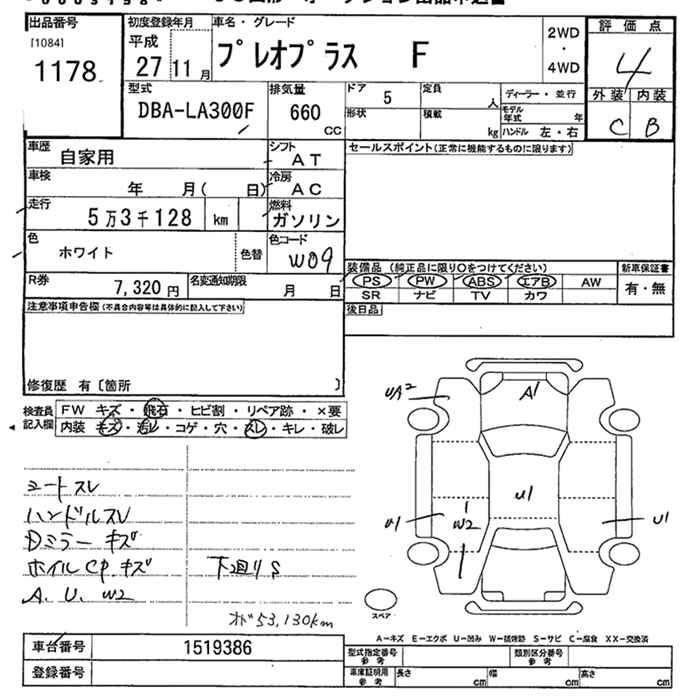 出品番号
[1084]
1178
初度登録年月
平成
27 11月
車名・グレード
プレオプラス F
2WD
・
4WD
評価点
4
外装 内装
C B
型式
DBA-LA300F
排気量
660
CC
ドア 5
形状
定員 人
積載 kg
ディーラー・並行
モデル年式 年
ハンドル 左・右
車歴 自家用
シフト AT
セールスポイント(正常に機能するものに限ります)
車検 年 月( 日)
冷房 AC
走行 5万3千128 km
燃料 ガソリン
色 ホワイト 色替
色コード W09
装備品 (純正品に限り○をつけてください)
新車保証書
PS PW ABS エアB AW
SR ナビ TV カワ
有・無
R券 7,320 円
名変通知期限 月 日
後日品
注意事項申告欄(不具合内容等は具体的に記入して下さい)
修復歴 有〔箇所 〕
検査員記入欄
FW キズ・飛石・ヒビ割・リペア跡・×要
内装 キズ・汚レ・コゲ・穴・スレ・キレ・破レ
シートスレ
ハンドルスレ
Dミラーキズ
ホイルCP.キズ 下廻りS
A. U. W2
53,130km
UA2
A1
U1
U1
1
W2
U1
スペア
A-キズ E-エクボ U-凹み W-補修跡 S-サビ C-腐食 XX-交換済
車台番号 1519386
登録番号
型式指定番号 参考
類別区分番号 参考
車庫証明用 参考
長さ cm 幅 cm 高さ cm